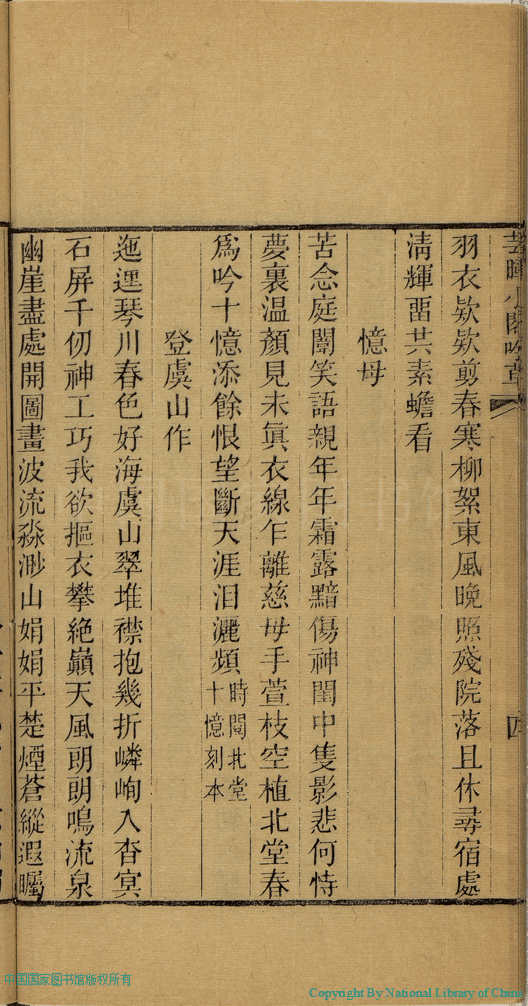 芸暉小閣吟草
四
羽衣欵欵剪春寒柳絮東風晚照殘院落且休尋宿處
淸輝畱共素蟾看
憶母
苦念庭闈笑語親年年霜露黯傷神閨中隻影悲何恃
夢裏温顏見未眞衣線乍離慈母手萱枝空植北堂春
爲吟十憶添餘恨望斷天涯泪灑頻時閱北堂
十憶刻本
登虞山作
迤逦琴川春色好海虞山翠堆襟抱幾折嶙峋入杳冥
石屏千仞神工巧我欲摳衣攀絶巔天風朗朗鳴流泉
幽崖盡處開圖畫波流淼渺山娟娟平楚煙蒼縱遐矚
中国国家图书馆版权所有
Copyright By National Library of China